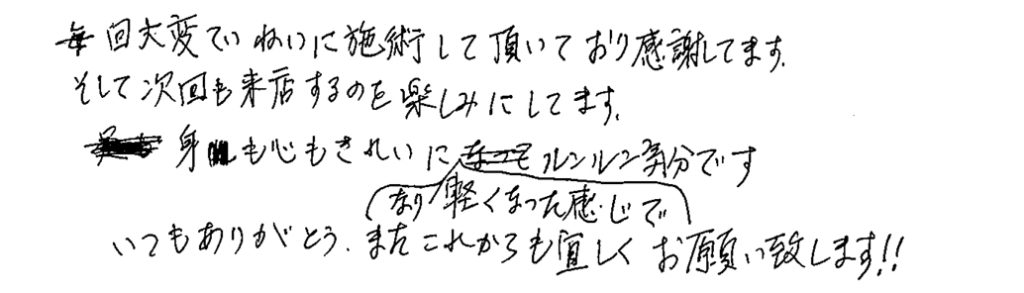 毎回大変ていねいに施術して頂いており感謝してます。
そして次回も来店するのを楽しみにしてます。
身も心もきれいになり軽くなった感じでルンルン気分です
いつもありがとう。またこれからも宜しくお願い致します!!